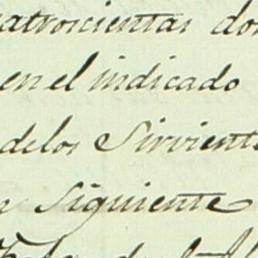 atrocientas do
en el indicado
delos Sirviente
Siguiente